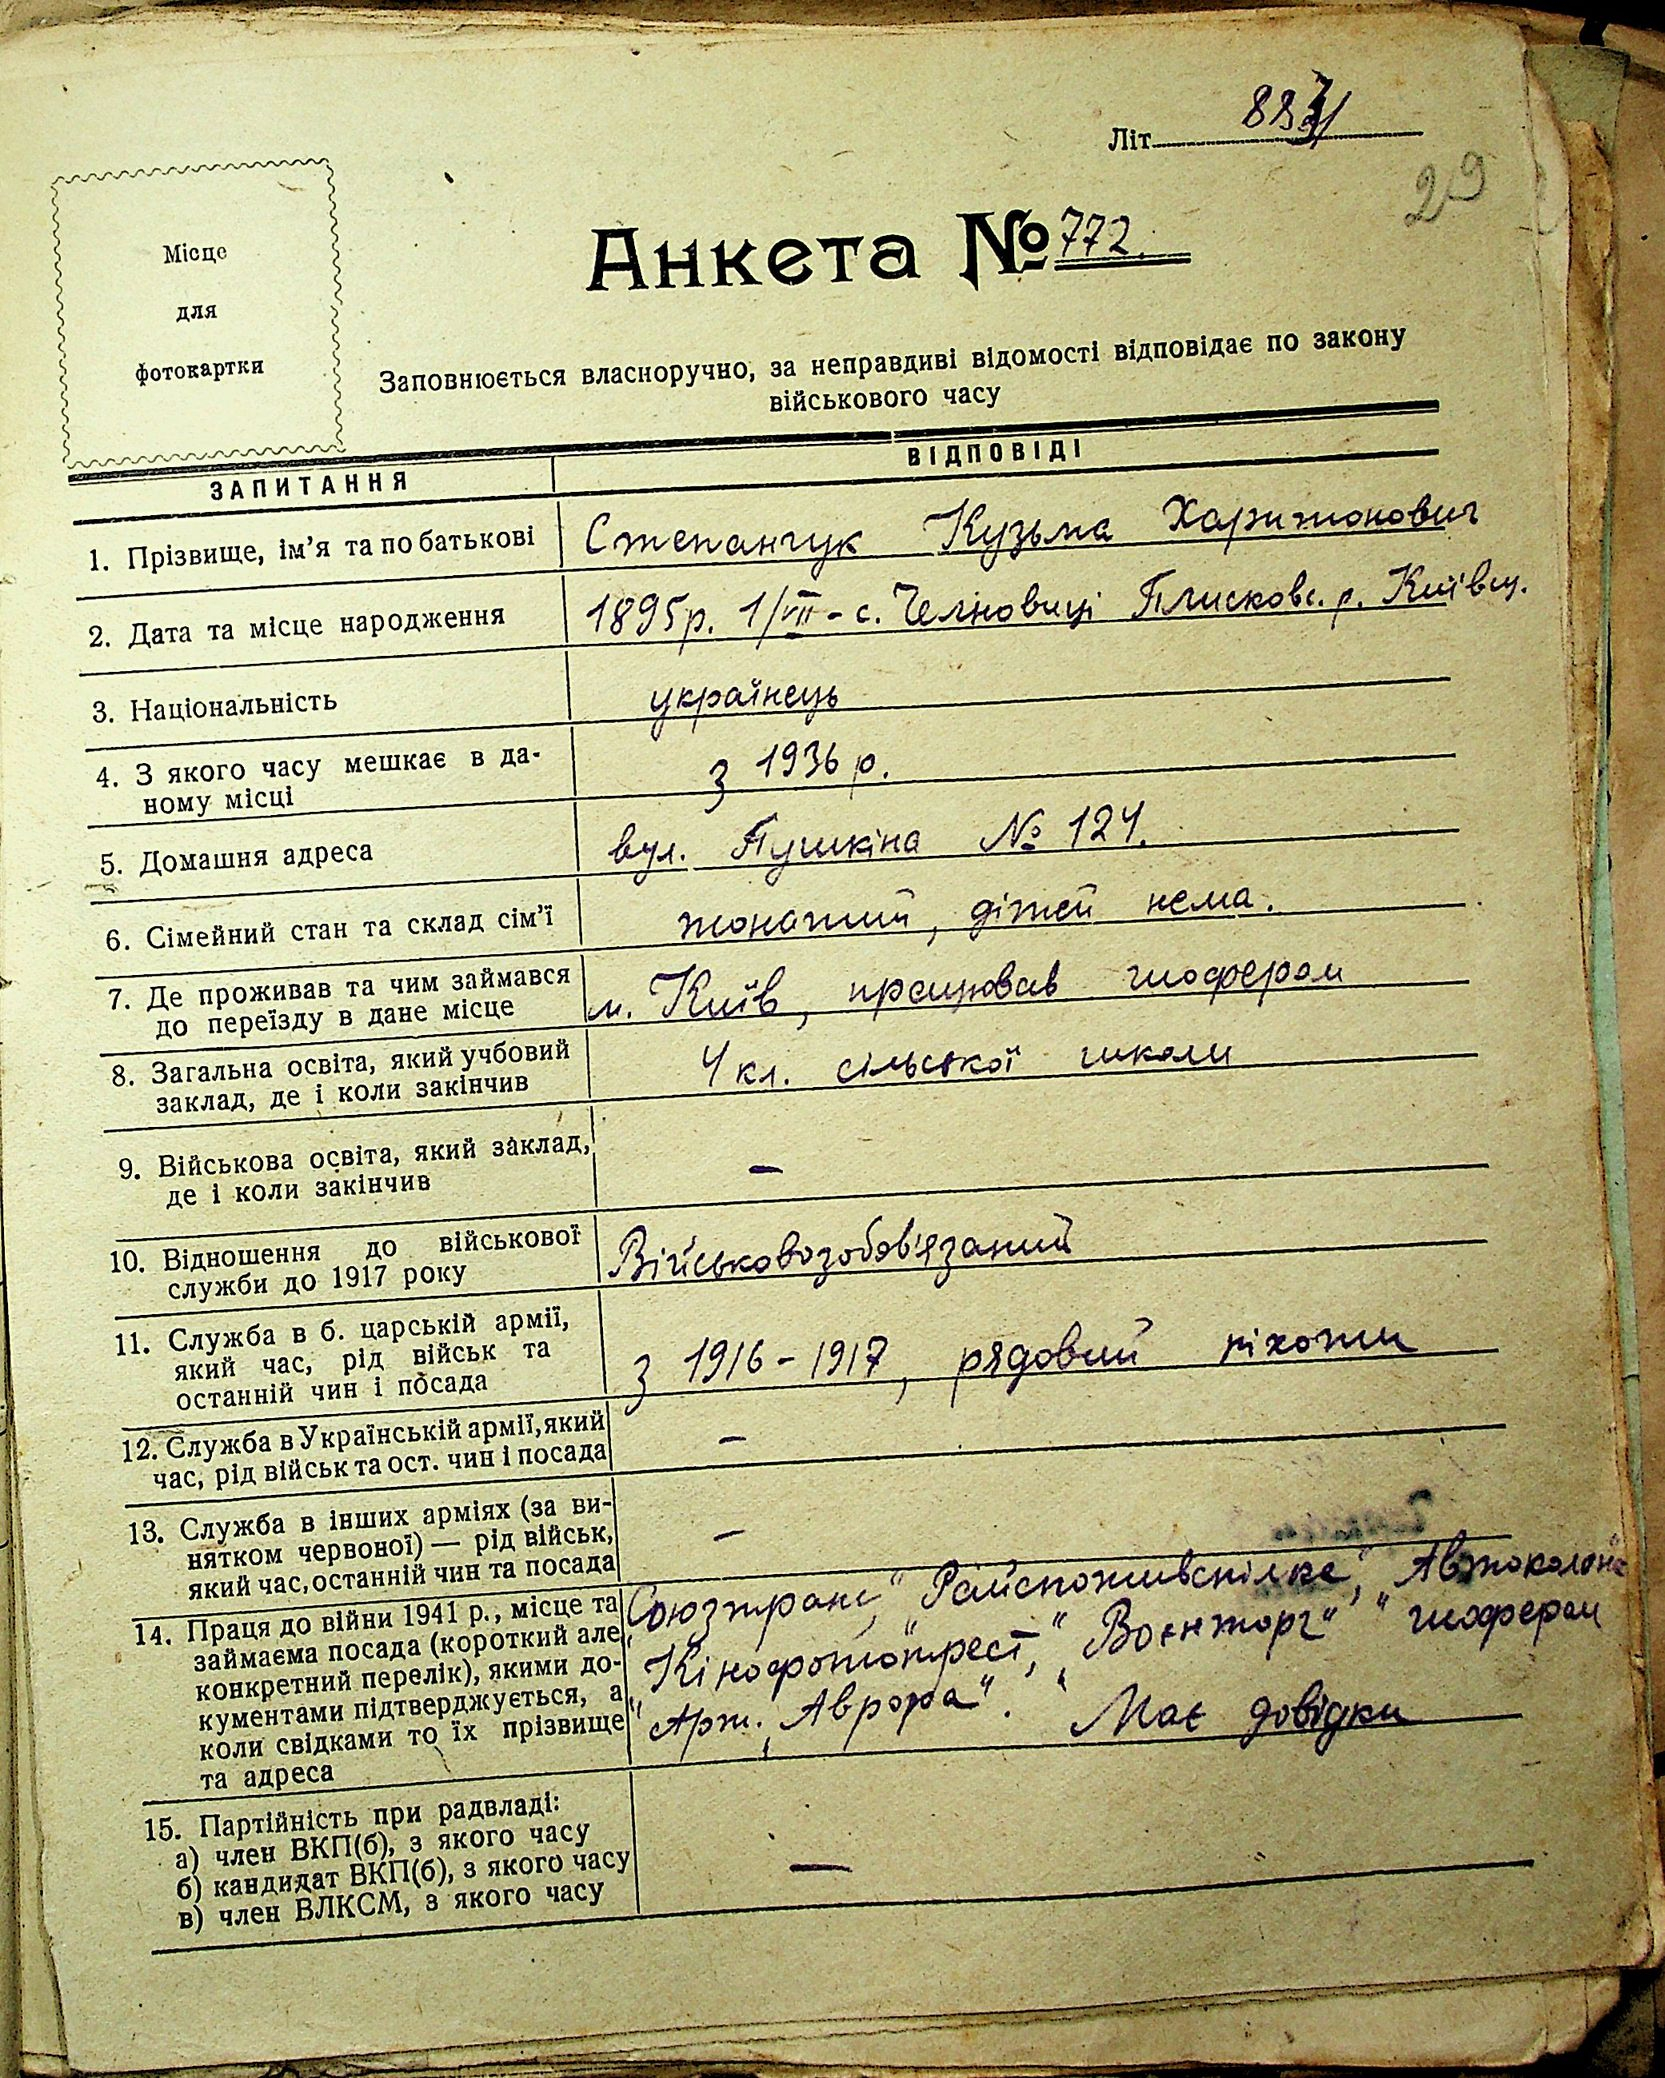 Літ
29
Місце
для
фотокартки
Анкета № 772.
Заповнюється власноручно, за неправдиві відомості відповідає по закону
військового часу
ЗАПИТАННЯ ВІДПОВІДІ
1. Прізвище, ім'я та по батькові Степанчук Кузьма Харитонович
2. Дата та місце народження 1895 р. 1/VII - с. Плисковс. р. Київщ.
3. Національність українець
4. З якого часу мешкає в да-
ному місці з 1936 р.
5. Домашня адреса вул. Пушкіна № 124.
6. Сімейний стан та склад сім'ї жонатий, дітей нема.
7. Де проживав та чим займався
до переїзду в дане місце м. Київ, працював шофером
8. Загальна освіта, який учбовий
заклад, де і коли закінчив 4 кл. сільської школи
9. Військова освіта, який заклад,
де і коли закінчив —
10. Відношення до військової
служби до 1917 року Військовозобов'язаний
11. Служба в б. царській армії,
який час, рід військ та
останній чин і посада з 1916 - 1917, рядовий піхоти
12. Служба в Українській армії, який
час, рід військ та ост. чин і посада —
13. Служба в інших арміях (за ви-
нятком червоної) — рід військ,
який час, останній чин та посада —
14. Праця до війни 1941 р., місце та
займаєма посада (короткий але
конкретний перелік), якими до-
кументами підтверджується, а
коли свідками то їх прізвище
та адреса
Союзтранс", "Райспоживспілка", "Автоколона"
"Кінофототрест", "Воєнторг" " шофером
"Арт. "Аврора". Має довідки
15. Партійність при радвладі:
а) член ВКП(б), з якого часу
б) кандидат ВКП(б), з якого часу
в) член ВЛКСМ, з якого часу —